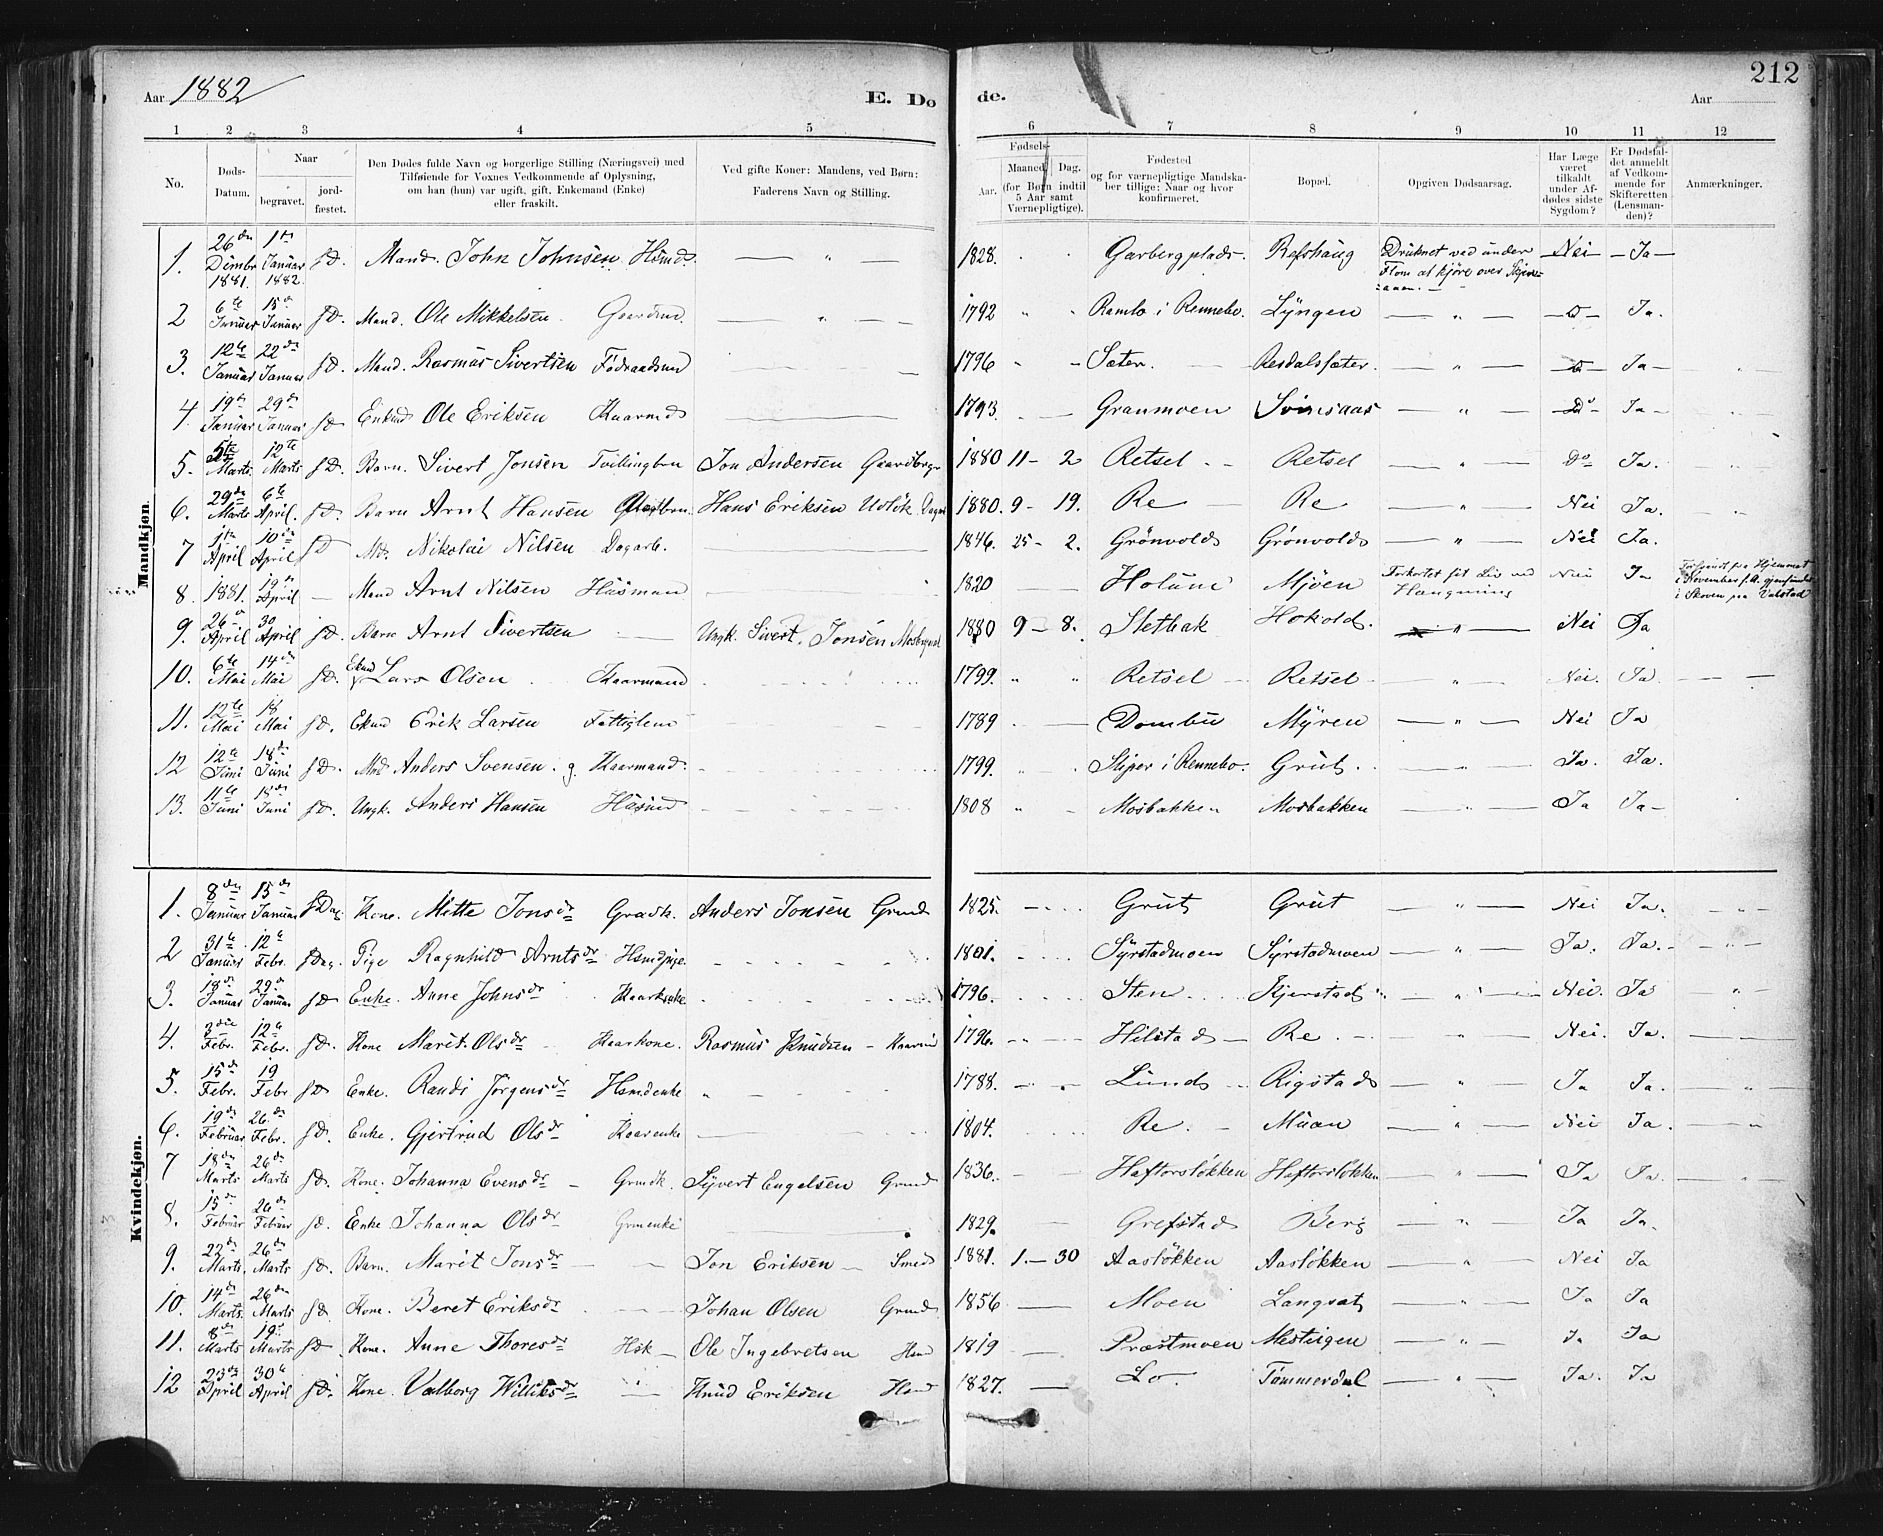 Aar 1882 E. Do de. Aar 212
1 2 3 4 5 6 7 8 9 10 11 12
No. Døds-Datum. Naar begravet. jord-fæstet. Den Dødes fulde Navn og borgerlige Stilling (Næringsvei) med Tilføiende for Voxnes Vedkommende af Oplysning, om han (hun) var ugift, gift, Enkemand (Enke) eller fraskilt. Ved gifte Koner: Mandens, ved Børn: Faderens Navn og Stilling. Fødsels- Aar. Maaned. Dag. (for Børn indtil 5 Aar samt Værnepligtige). Fødested og for værnepligtige Mandska-ber tillige: Naar og hvor konfirmeret. Bopæl. Opgiven Dødsaarsag. Har Læge været tilkaldt under Af-dødes sidste Sygdom? Er Dødsfal-det anmeldt af Vedkom-mende for Skifteretten (Lensman-den)? Anmærkninger.
Mandkjøn.
1. 26de Dcmbr 1881. 1ste Januar 1882. s.D. Mand. John Johnsen Hsmd. — " — 1828. Garbergplads. Refshaug Druknet ved under Flom at kjøre over — Nei — Ja —
2 6te Januar 15de Januar s.D. Mand. Ole Mikkelsen. — " — 1792 " " Ramlo i Rennebo. Lyngen — " — Do Ja.
3. 12te Januar 22de Januar s.D. Mand. Rasmus Sivertsen Føderaadsmd 1796 Sæter. Resdalssæter. — " — Do Ja —
4. 19de Januar 29de Januar s.D Enkmd Ole Eriksen Kaarmd 1793. Granmoen Svinsaas — " — Do Ja —
5. 5te Marts. 12te Marts s.D. Barn. Sivert Jonsen Tvillingbrn Jon Andersen Gaardbrger 1880 11 - 2 Retsel Retsel — " — Do Ja.
6. 29de Marts 6te April. s.D. Barn Arnt Hansen Hans Eriksen 1880. 9 - 19. Re — Re — " — Nei Ja.
7 1ste April 10de April s.D Md. Nikolai Nilsen Dagarb. 1846. 25 - 2. Grönvolds Grönvolds — " — Nei Ja.
8. 1881. 19de April — Mand Arnt Nilsen Husmand 1820 — Holum Mjöen Forkortet sit Liv ved Hængning Nei Ja Forsvandt fra Hjemmet i November f.A. gjenfundet i Skoven paa
9. 26de April 30 April s.D. Barn Arnt Sivertsen Ungk. Sivert Jonsen 1880 9 - 8. Stetbak Hokold. — " — Nei Ja
10. 6te Mai 14de Mai s.D. Ekmd Lars Olsen Kaarmand 1799. " " Retsel Retsel — " — Nei. Ja.
11. 12te Mai 18 Mai s.D. Ekmd Erik Larsen Fattiglem 1789 Dombu Myren — " — Nei Ja
12 12te Juni 18de Juni s.D. Md Anders Svensen. g. Kaarmand. 1799. " Skjær i Rennebo. Grut. — " — Ja. Ja.
13. 11te Juni 18de Juni s.D. Ungk. Anders Hansen Husmd 1808 " Mosbakken Mosbakken " Ja Ja —
Kvindekjøn.
1. 8de Januar 15de Januar s.Dag. Kone. Mitte Jonsdr Anders Jonsen Grmd 1825. Grut Grut — " — Nei Ja.
2 31te Januar 12te Febr. s.Dag. Pige Ragnhild Arntsdr Hsmdpige. 1801. Syrstadmoen Syrstadmoen — " — Ja. Ja.
3. 18de Januar 29de Januar s.D Enke. Anne Johnsdr Kaarenke 1796. Sten Kjerstad — " — Nei. Ja "
4. 3die Febr. 12te Febr. s.D. Kone Marit Olsdr Kaarkone. Rasmus Knudsen — Kaarmd 1796. Hilstad — Re. " Nei. Ja.
5. 15de Febr. 19 Febr s.D Enke. Randi Jörgensdr Hsmdenke " 1788. Lund Rigstad — " — Ja Ja. "
6. 19de Februar 26de Febr. s.D. Enke. Gjertrud Olsdr Kaarenke 1804. Re. — Muan — " — Nei Ja. "
7 18de Marts 26de Marts s.D. Kone. Johanna Evensdr — Grmdk. Sivert Engelsen Grmd 1836. Haftorsløkken Haftorsløkken — " — Ja Ja. "
8. 15de Februar 26de Februar s.D. Enke Johanna Olsdr Grmenke 1829. Grefstad Berg — " — Ja Ja.
9. 22de Marts. 26de Marts s.D. Barn. Marit Jonsdr Jon Eriksen — Smed 1881. 1. - 30 Aasløkken Aasløkken — " — Nei Ja
10. 14de Marts. 26de Marts s.D. Kone. Beret Eriksdr Johan Olsen Grmd 1856 — Moen Langsæt — " — Ja Ja
11. 8de Marts 19de Marts s.D. Kone. Anne Thoresdr Hsk — Ole Ingebretsen Hsmd 1819 — Præstmoen — " — Ja Ja
12 23de April 30te April s.D. Kone. Valborg Knud Eriksen Hsmd 1827. — Lo. Tømmerdal — " — Ja. Ja